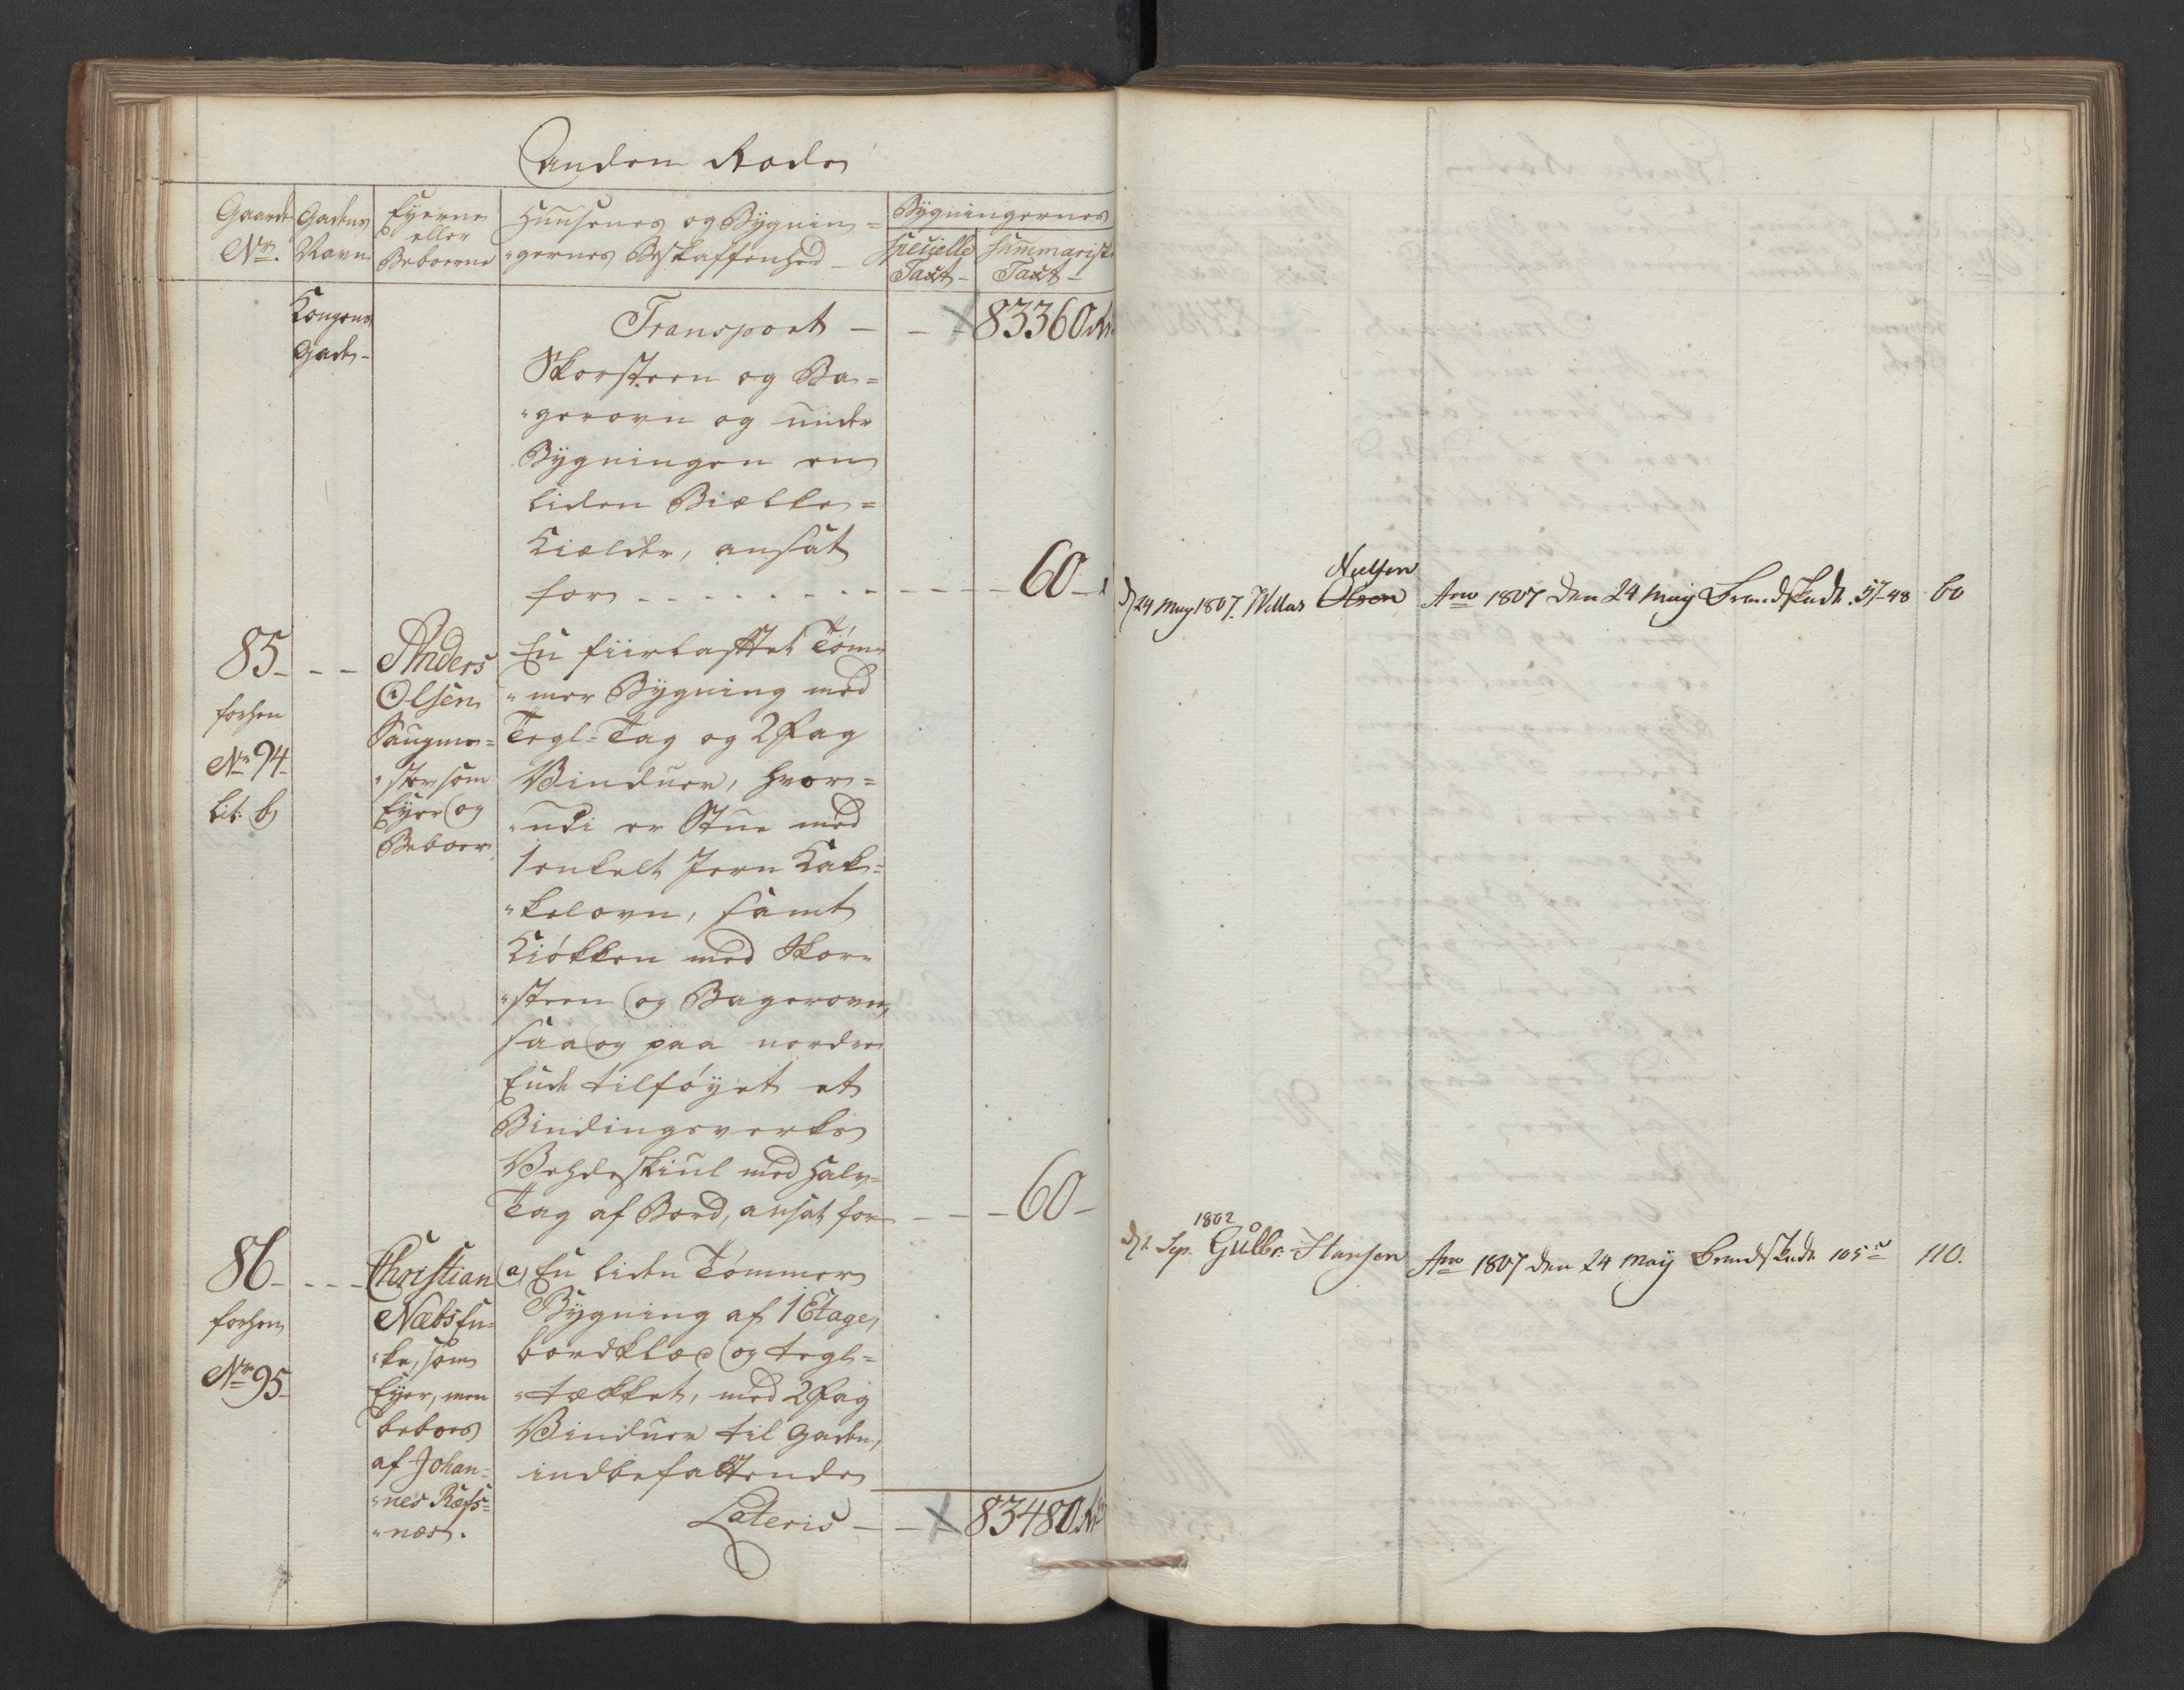 Anden Rode
Gaards No.
Gadens Navn
Eyerne eller Beboerne
Huusenes og Bygnin=
"gernes Beskaffenhed
Bygningernes
specielle Taxt
summarisk Taxt
Kongens
Gade
Transport — 83360 Rd
Skorsteen og Ba=
"gerovn og under
Bygningen en
liden Bielke=
Kielder, ansat
for 60
85
forhen
No 94
Lit: b
Anders
Olsen
Saugme=
"ster som
Eyer og
Beboer
En fiirlafttet Tøm=
"mer Bygning med
Tegl=Tag og 2 Fag
Vinduer, hvor=
"udi er Stue med
1 enkelt Jern Kak=
"kelovn, samt
Kiøkken med Skor=
"steen og Bagerovn,
saa og paa nordre
Ende tilføyet et
Bindingsverks
Vehdeskiul med halv=
Tag af Bord, ansat for 60
86
forhen
No 95
Christian
Næbs En=
"ke, som
Eyer, men
beboes
af Johan=
"nes Ræfs=
"næs.
a) En liden Tømmer
Bygning af 1 Etage,
bordklæd og tegl=
"tækket, med 2 Fag
Vinduer til Gaden,
indbefattende
Lateris — 83480 Rd
Nielsen
d 24 May 1807. Olsen Ano 1807 den 24 May Brandskade. 57-48 60
1802
d 1. Sep. Gulbr. Hansen Ano 1807 den 24 May Brandskade 105 110.